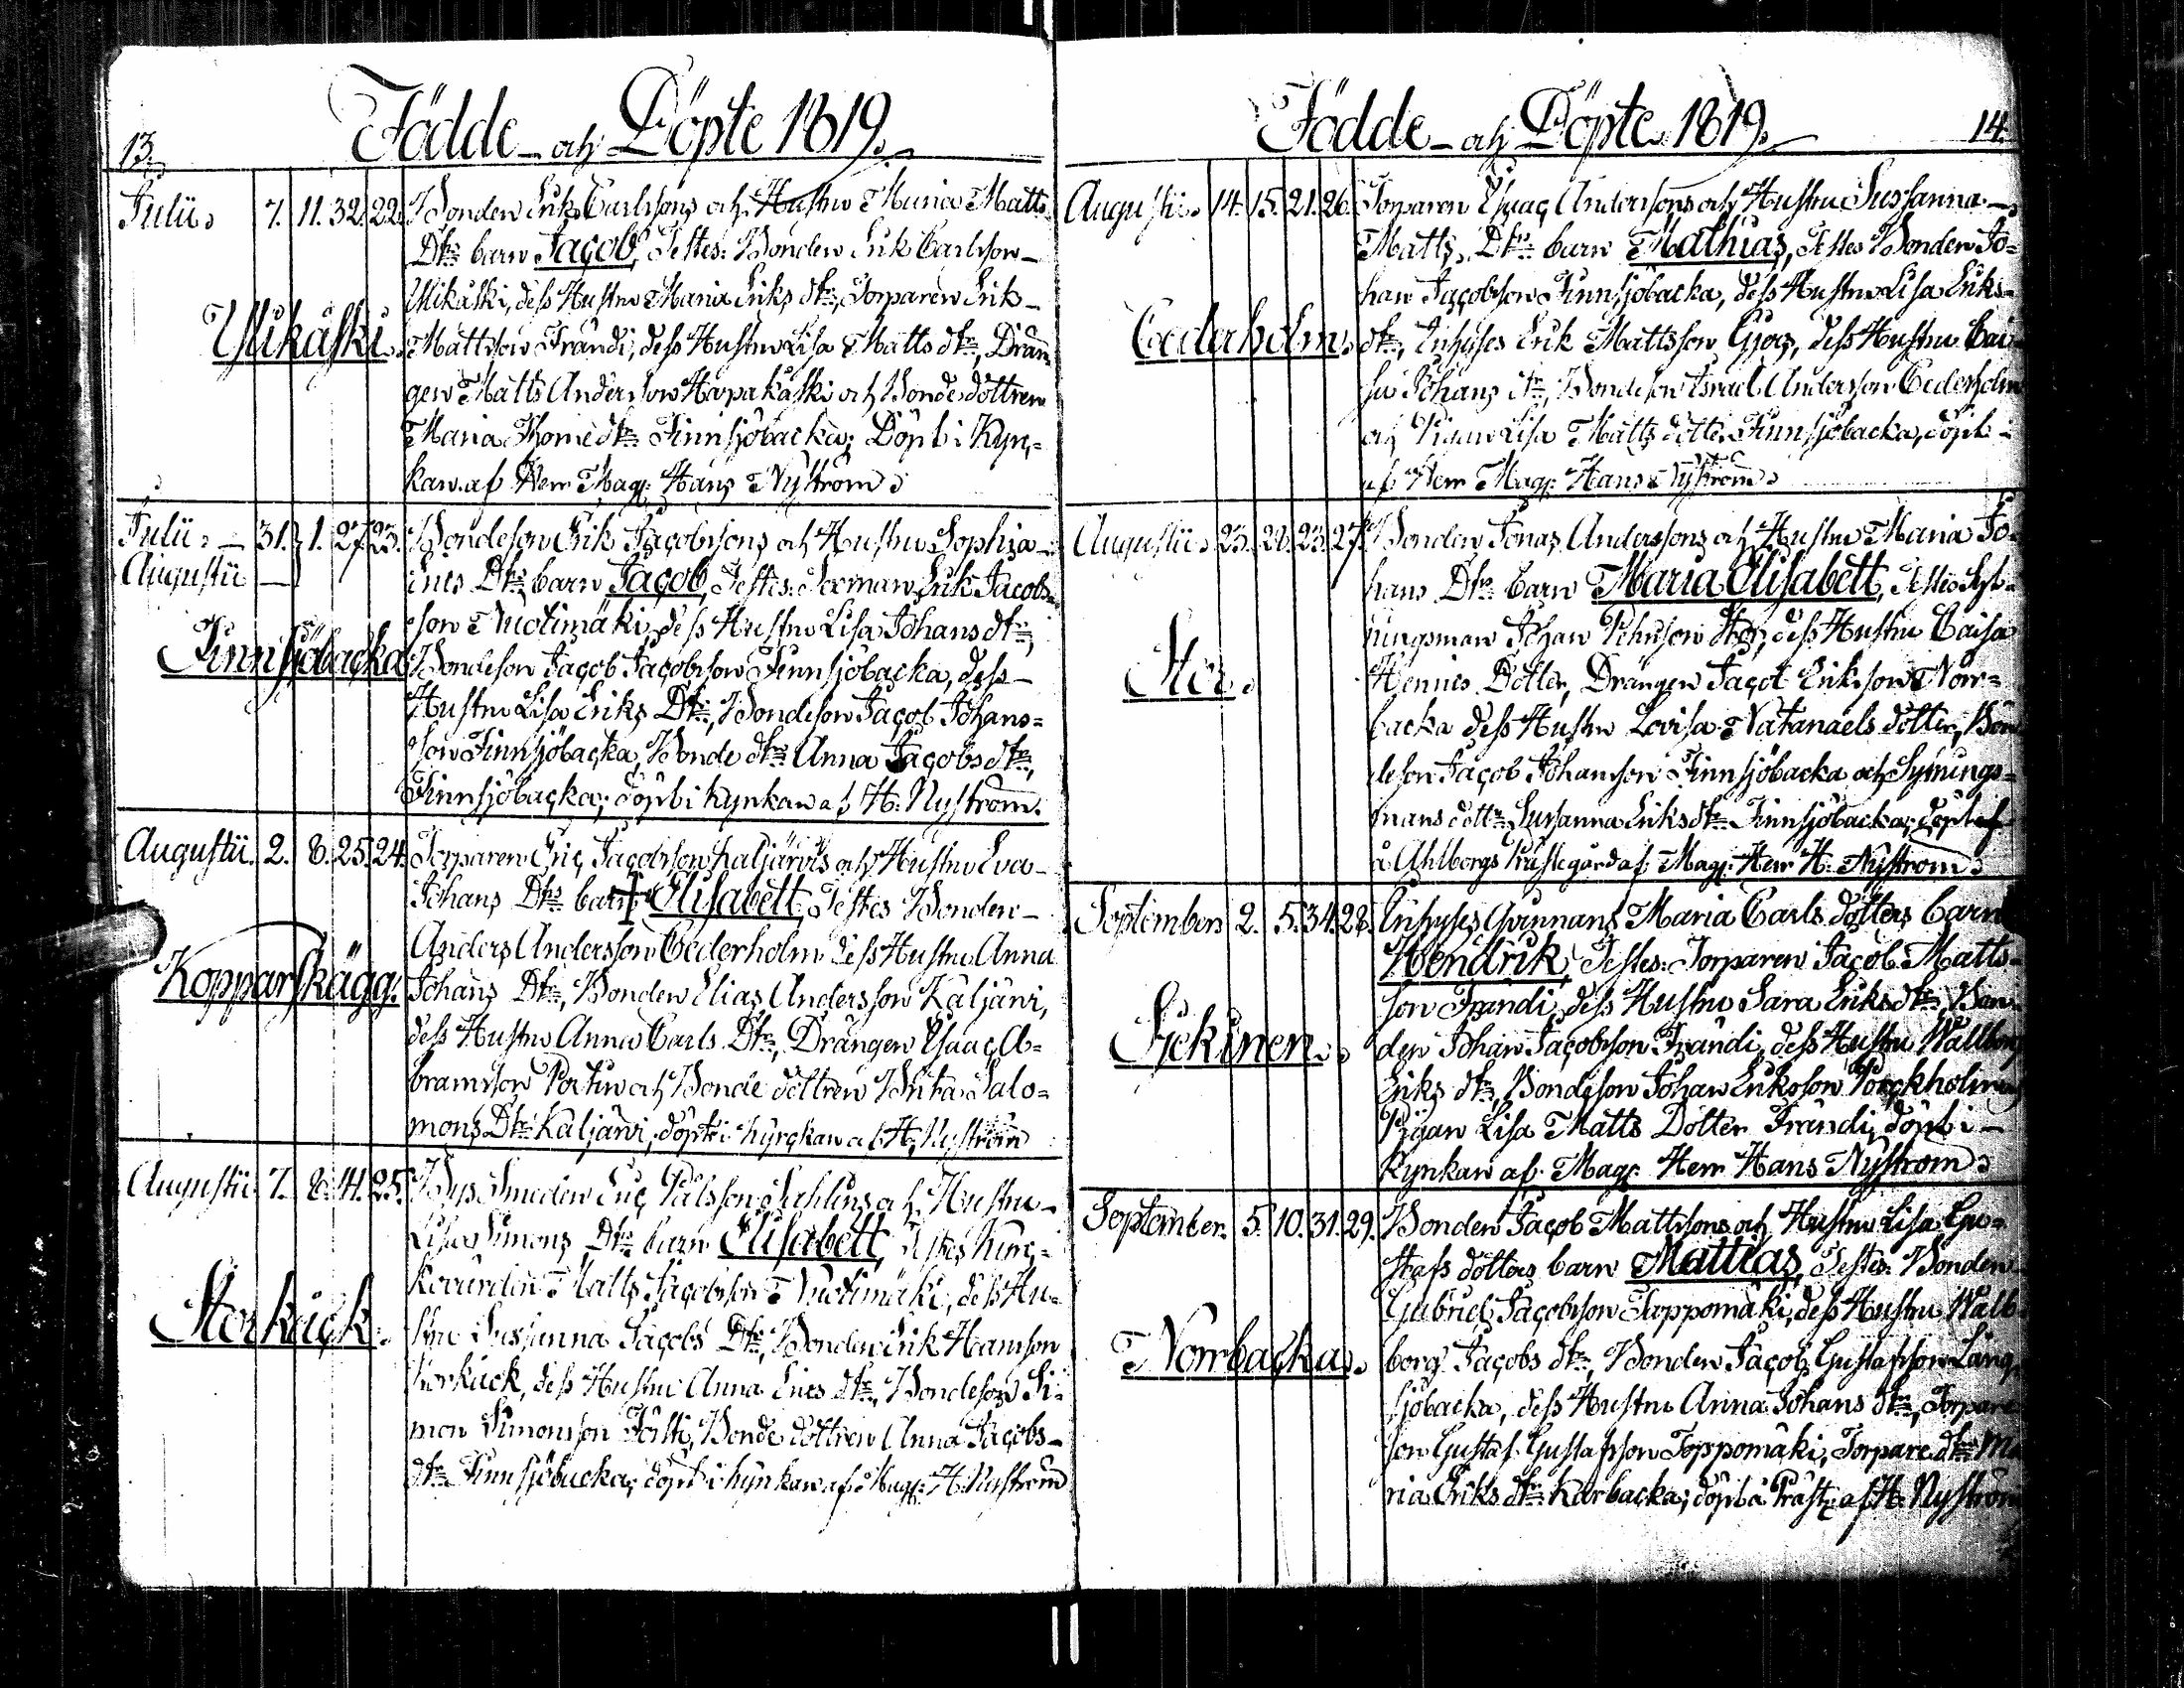 Födde och Döpte 1819.
13.
Julii. 7. 11. 32. 22. Bonden Erik Carlssons och Hustru Maria Matts
Dtrs barn Jacob, Testes: Bonden Erik Carlsson
Ylikäski, dess Hustru Maria Eriks dtr, Torparen Erik
Ylikäski. Mattsson Frändi, dess Hustru Lisa Matts dtr, Drän
gen Matts Andersson Harpakäski och Bondedottren
Maria Thome dtr Finnsjöbacka; Döpt i Kyr,
kan af Herr Mag: Hans Nyström
Julii 31. 1. 27. 23. Bondeson Erik Jacobssons och Hustru Sophia
Augustii Erics Dtrs barn Jacob, Testes: Sexman Erik Jacobs
son Nuotimäki, dess Hustru Lisa Johans dtr,
Finnsjöbacka Bondeson Jacob Jacobsson Finnsjöbacka, dess
Hustru Lisa Eriks Dtr, Bondeson Jacob Johans=
son Finnsjöbacka, Bonde dtr Anna Jacobs dtr,
Finnsjöbacka; döpt i Kyrkan af H. Nyström.
Augustii. 2. 8. 25. 24. Torparen Eric Jacobsson Kaljärvis och Hustru Eva
Johans Dtrs barn + Elisabett, Testes Bonden
Anders Andersson Cederholm dess Hustru Anna
Kopparskägg. Johans Dtr, Bonden Elias Andersson Kaljärvi,
dess Hustru Anna Carls Dtr, Drängen Isaac A=
bramsson och Bonde dottren Brita Salo=
mons Dtr Kaljärvi; döpt i kyrckan af H. Nyström
Augustii 7. 8. 41. 25. Bys Smeden Eric Pålsson Sahlins och Hustru
Lisa Simons Dtrs barn Elisabett, Testes Kyrc,
kovärden Matts Jacobsson Nuotimäki, dess Hu=
Storkåck. stru Susanna Jacobs Dtr, Bonden Erik Hansson
Storkåck, dess Hustru Anna Erics dtr, Bondeson Si=
mon Simonsson Försti, Bonde dottren Anna Jacobs
dtr Finnsjöbacka; döpt i kyrkan af Mag: H. Nyström
Födde och Döpte 1819.
14.
Augustii. 14. 15. 21. 26. Torparen Isaac Anderssons och Hustru Susanna
Matts Dtrs barn Mathias, Testes Bonden Jo=
han Jacobsson Finnsjöbacka, dess Hustru Lisa Eriks
Cederholm. dtr, Inhyses Erik Mattsson, dess Hustru Cai
sa Johans dtr, Bondeson Israel Andersson Cederholm
och Pigan Lisa Matts dotter Finnsjöbacka, döpt
af Herr Mag: Hans Nyström
Augustii. 23. 28. 23. 27. Bonden Jonas Anderssons och Hustru Maria Jo
hans Dtrs barn Maria Elisabett, Testes
Johan Stor, dess Hustru Caisa
Stor. Hennics Dotter, Drängen Jacob Eriksson Norr=
backa dess Hustru Lovisa Natanaels dotter, Bon
deson Jacob Johansson Finnsjöbacka och Sytnings=
mans dottr Susanna Eriks dtr Finnsjöbacka; döpt af
å Ahlborgs Prästegård af Mag: Herr H. Nyström
September 2. 5. 34. 28. Inhyses Qvinnans Maria Carls dotters barn
Hendrik, Testes: Torparen Jacob Matts=
son Frändi, dess Hustru Sara Eriks dtr, Bon
Sickinen. den Johan Jacobsson Frändi, dess Hustru Wallborg
Eriks dtr, Bondeson Johan Eriksson
Pigan Lisa Matts Dotter Frändi, döpt i
Kyrkan af Mag: Herr Hans Nyström
September. 5. 10. 31. 29. Bonden Jacob Mattssons och Hustru Lisa Gu=
stafs dotters barn Mattias, Testes: Bonden
Gabriel Jacobsson Toppomäki, dess Hustru Walb
Norrbacka. borg Jacobs dtr, Bonden Jacob Gustafsson Lång,
sjöbacka, dess Hustru Anna Johans dtr, Torpare
son Gustaf Gustafsson Toppomäki, Torpare dtr Ma
ria Eriks dtr Karbacka; döpt å Prästg. af H. Nyström